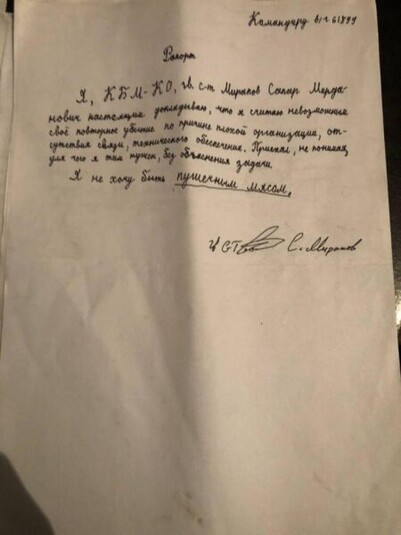 Командиру в/ч 61899
Рапорт
Я, КБМ-КО, гв. с-т Мирапов Сапар Мерда-
нович настоящим докладываю, что я считаю невозможным
своё повторное убытие по причине плохой организации, от-
сутствия связи, технического обеспечения. Приехал, не понимая,
для чего я там нужен, без объяснения задачи.
Я не хочу быть пушечным мясом.
С. Мирапов